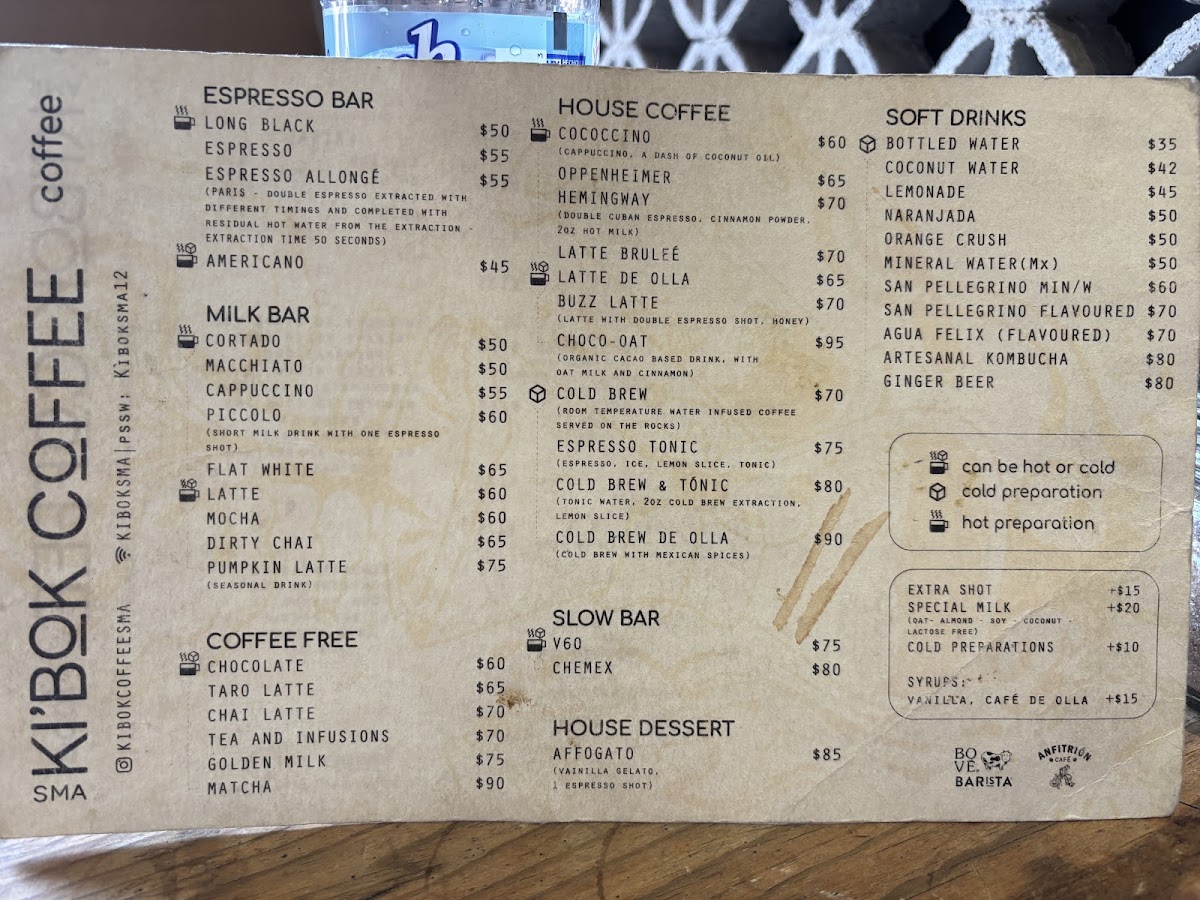 KI'BOK COFFEE coffee
SMA
@KIBOKCOFFEESMA
KIBOKSMA|PSSW: KIBOKSMA12
ESPRESSO BAR
LONG BLACK $50
ESPRESSO $55
ESPRESSO ALLONGÉ $55
(PARIS - DOUBLE ESPRESSO EXTRACTED WITH
DIFFERENT TIMINGS AND COMPLETED WITH
RESIDUAL HOT WATER FROM THE EXTRACTION -
EXTRACTION TIME 50 SECONDS)
AMERICANO $45
MILK BAR
CORTADO $50
MACCHIATO $50
CAPPUCCINO $55
PICCOLO $60
(SHORT MILK DRINK WITH ONE ESPRESSO
SHOT)
FLAT WHITE $65
LATTE $60
MOCHA $60
DIRTY CHAI $65
PUMPKIN LATTE $75
(SEASONAL DRINK)
COFFEE FREE
CHOCOLATE $60
TARO LATTE $65
CHAI LATTE $70
TEA AND INFUSIONS $70
GOLDEN MILK $75
MATCHA $90
HOUSE COFFEE
COCOCCINO $60
(CAPPUCCINO, A DASH OF COCONUT OIL)
OPPENHEIMER $65
HEMINGWAY $70
(DOUBLE CUBAN ESPRESSO, CINNAMON POWDER,
2OZ HOT MILK)
LATTE BRULEÉ $70
LATTE DE OLLA $65
BUZZ LATTE $70
(LATTE WITH DOUBLE ESPRESSO SHOT, HONEY)
CHOCO-OAT $95
(ORGANIC CACAO BASED DRINK, WITH
OAT MILK AND CINNAMON)
COLD BREW $70
(ROOM TEMPERATURE WATER INFUSED COFFEE
SERVED ON THE ROCKS)
ESPRESSO TONIC $75
(ESPRESSO, ICE, LEMON SLICE, TONIC)
COLD BREW & TÓNIC $80
(TONIC WATER, 2OZ COLD BREW EXTRACTION,
LEMON SLICE)
COLD BREW DE OLLA $90
(COLD BREW WITH MEXICAN SPICES)
SLOW BAR
V60 $75
CHEMEX $80
HOUSE DESSERT
AFFOGATO $85
(VAINILLA GELATO,
1 ESPRESSO SHOT)
SOFT DRINKS
BOTTLED WATER $35
COCONUT WATER $42
LEMONADE $45
NARANJADA $50
ORANGE CRUSH $50
MINERAL WATER(Mx) $50
SAN PELLEGRINO MIN/W $60
SAN PELLEGRINO FLAVOURED $70
AGUA FELIX (FLAVOURED) $70
ARTESANAL KOMBUCHA $80
GINGER BEER $80
can be hot or cold
cold preparation
hot preparation
EXTRA SHOT +$15
SPECIAL MILK +$20
(OAT- ALMOND - SOY - COCONUT -
LACTOSE FREE)
COLD PREPARATIONS +$10
SYRUPS:
VANILLA, CAFÉ DE OLLA +$15
BO
VE.
BARISTA
ANFITRIÓN
CAFÉ